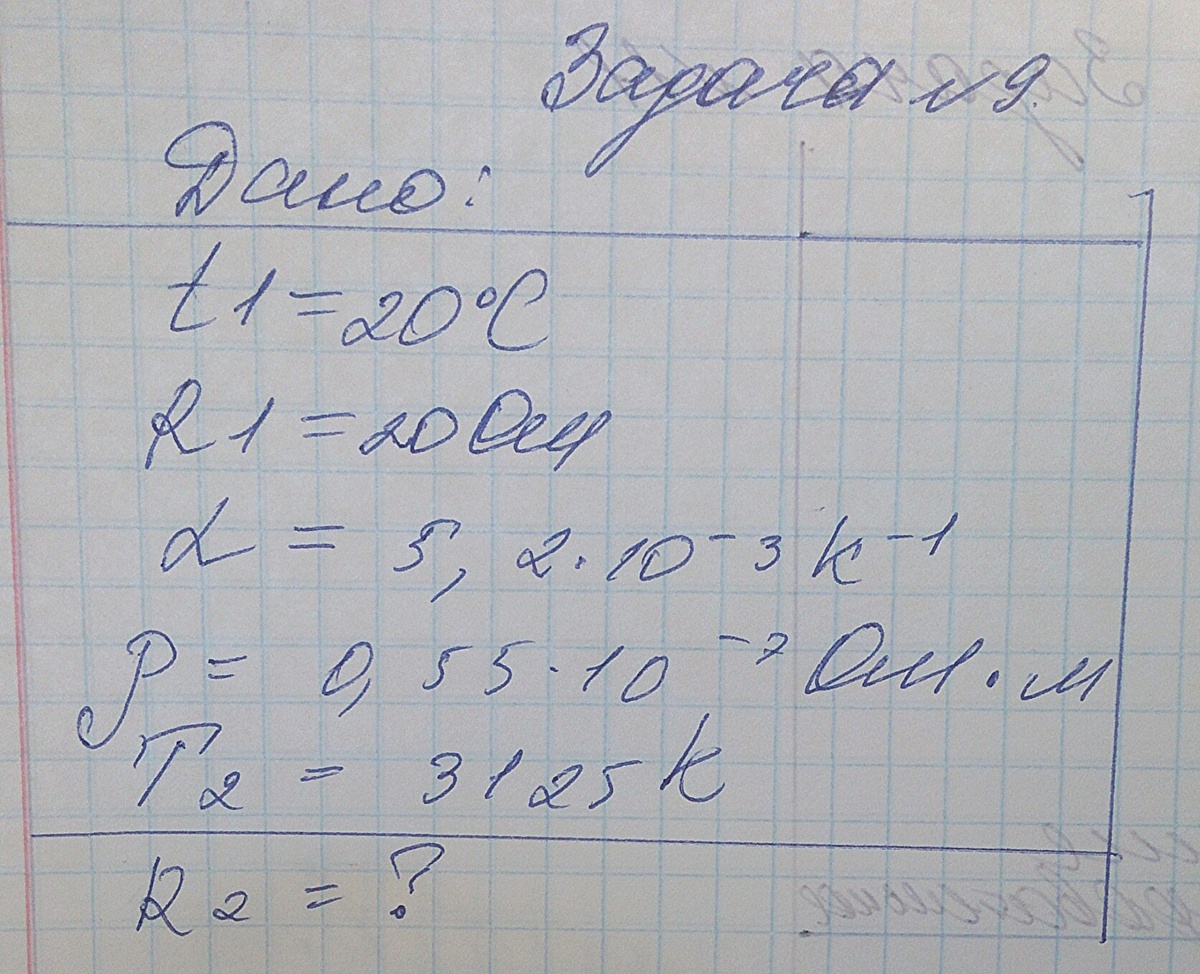 Задача №9.
Дано:
t1 = 20°C
R1 = 20 Ом
α = 5,2·10⁻³ K⁻¹
ρ = 0,55·10⁻⁷ Ом·м
T₂ = 3125 K
R₂ = ?